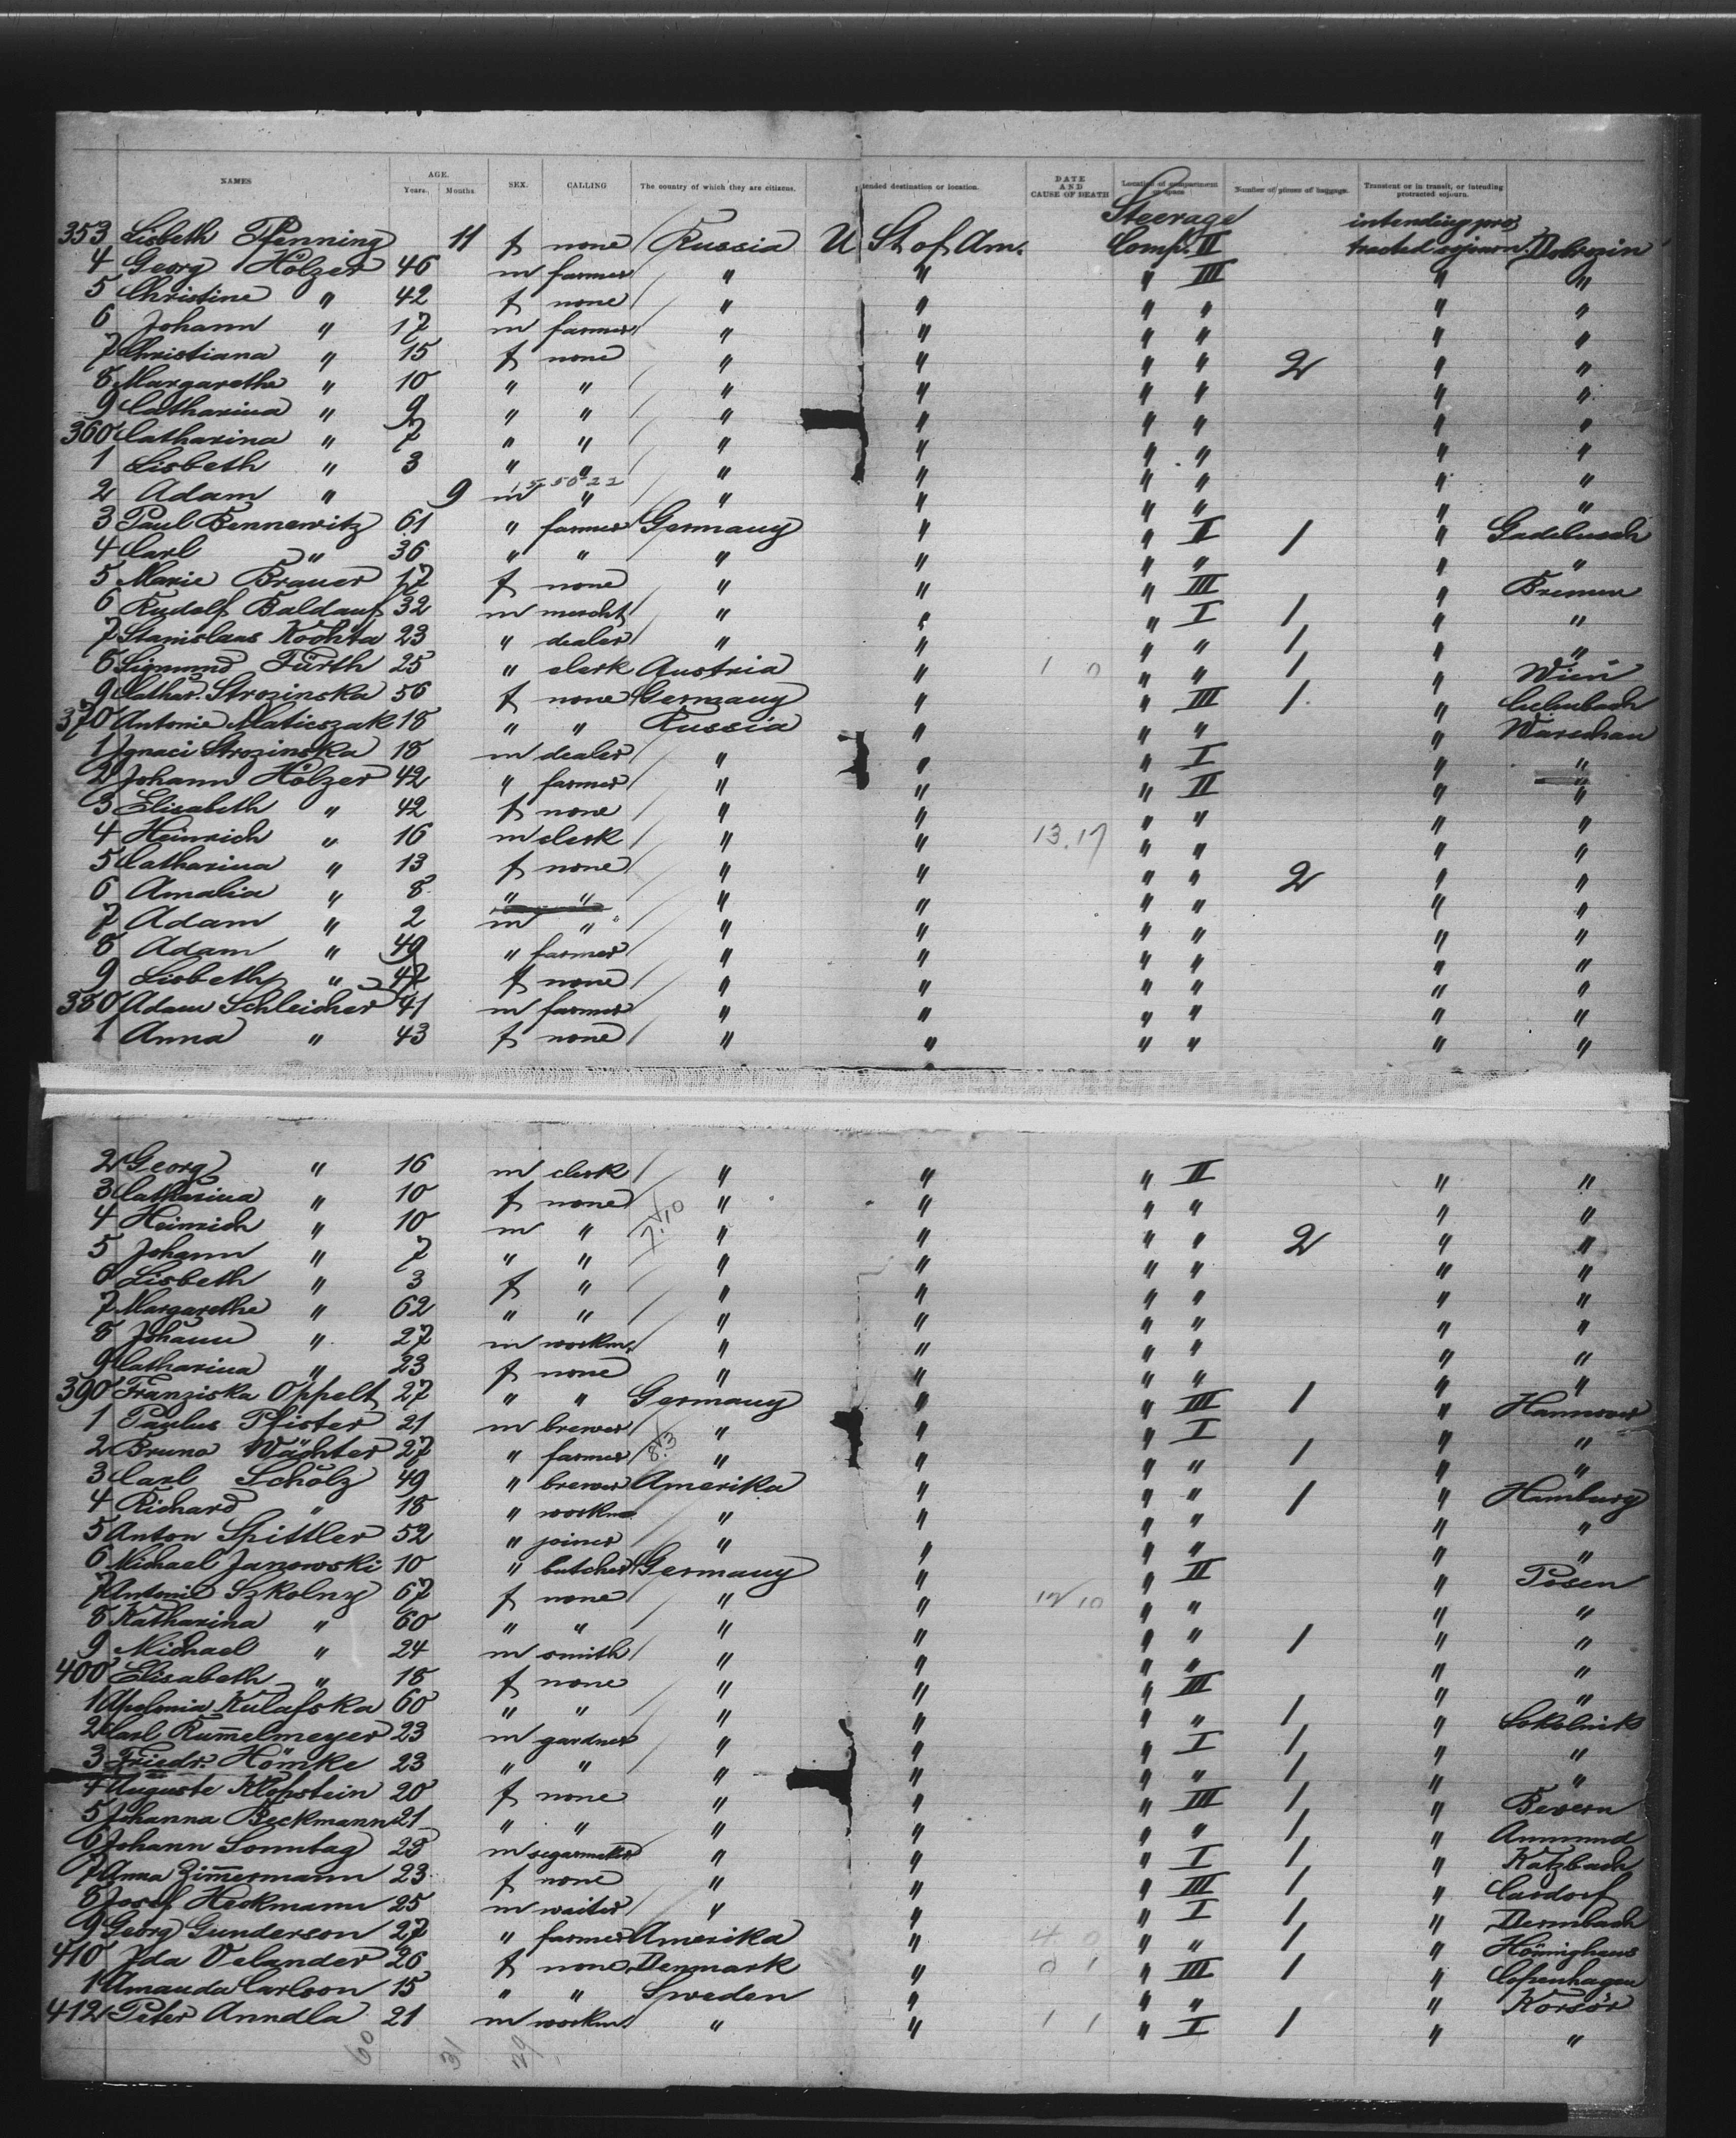 NAMES AGE. Years. Months SEX. CALLING The country of which they are citizens. tended destination or location. DATE AND CAUSE OF DEATH Location of compartment or space Number of pieces of baggage. Transient or in transit, or intending protracted sojourn.
Steerage intending pro
353 Lisbeth Pfenning 11 f none Russia U St of Am. Comp. II tracted sojourn
4 Georg Hölzer 46 m farmer " " " III " "
5 Christine " 42 f none " " " " " "
6 Johann " 17 m farmer " " " " " "
7 Christiana " 15 f none " " " " 2 " "
8 Margarethe " 10 " " " " " " " "
9 Catharina " 9 " " " " " " " "
360 Catharina " 7 " " " " " " " "
1 Lisbeth " 3 " " " " " " " "
2 Adam " 9 m " " " " " " "
3 Paul Bennewitz 61 " farmer Germany " " II 1 " Gadebusch
4 Carl " 36 " " " " " " " "
5 Marie Brauer f none " " " III " Bremen
6 Rudolf Baldauf 32 m mercht " " " I 1 " "
7 Stanislaus Kochta 23 " dealer " " " " 1 " "
8 Sigmund Fürth 25 " clerk Austria " 1 0 " " 1 " Wien
9 Cathar. Strozinska 56 f none Germany " " III 1 "
370 Antonie Maticszak 18 " " Russia " " " " Warschau
1 Ignaci Strozinska 18 m dealer " " " I " "
2 Johann Hölzer 42 " farmer " " " II " "
3 Elisabeth " 42 f none " " " " " "
4 Heinrich " 16 m clerk " " 13.17 " " " "
5 Catharina " 13 f none " " " " 2 " "
6 Amalia " 8 " " " " " " " "
7 Adam " 2 m " " " " " " "
8 Adam " 49 " farmer " " " " " "
9 Lisbeth " 42 f none " " " " " "
380 Adam Schleicher 41 m farmer " " " " " "
1 Anna " 43 f none " " " " " "
2 Georg " 16 m clerk " " " II " "
3 Catharina " 10 f none " " " " " "
4 Heinrich " 10 m " " " " " 2 " "
5 Johann " 7 " " " " " " " "
6 Lisbeth " 3 f " " " " " " "
7 Margarethe " 62 " " " " " " " "
8 Johann " 27 m workm. " " " " " "
9 Catharina " 23 f none " " " " " "
390 Franziska Oppelt 27 " " Germany " " III 1 " Hannover
1 Paulus Pfister 21 m brewer " " " I " "
2 Bruno Wächter 27 " farmer " " " " 1 " "
3 Carl Scholz 49 " brewer Amerika " " " 1 " Hamburg
4 Richard " 18 " workm " " " " " "
5 Anton Spittler 52 " joiner " " " " " "
6 Michael Janowski 10 " butcher Germany " " II " Posen
7 Antonie Szkolny 67 f none " " 12 10 " " " "
8 Katharina " 60 " " " " " " 1 " "
9 Michael " 24 m smith " " " " " "
400 Elisabeth " 18 f none " " " III " "
1 Apolonia Kulafska 60 " " " " " " 1 " Sokolnik
2 Carl Rummelmeyer 23 m gardner " " " I 1 " "
3 Friedr. Hömke 23 " " " " " " 1 " "
4 Auguste Klopstein 20 f none " " " III 1 " Bevern
5 Johanna Beckmann 21 " " " " " " 1 " Aumund
6 Johann Sonntag 28 m segarmaker " " " I 1 " Katzbach
7 Anna Zimmermann 23 f none " " " III 1 " Casdorf
8 Josef Heckmann 25 m waiter " " " I 1 " Dermbach
9 Georg Gunderson 27 " farmer Amerika " 4 0 " " 1 " Hönninghaus
410 Ida Velander 26 f none Denmark " 0 1 " III 1 " Copenhagen
1 Amanda Carlson 15 " " Sweden " " " " Korsör
412 Peter Anndla 21 m workm " " 1 1 " I 1 " "
60 31 29